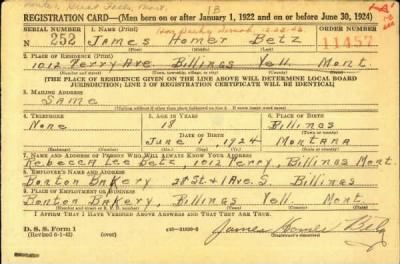 Great Falls, Mont.
1B
REGISTRATION CARD—(Men born on or after January 1, 1922 and on or before June 30, 1924)
SERIAL NUMBER
1. NAME (Print)
ORDER NUMBER
252
James Homer Betz
11457
2. PLACE OF RESIDENCE (Print)
1012 Terry Ave. Billings Yell. Mont.
[THE PLACE OF RESIDENCE GIVEN ON THE LINE ABOVE WILL DETERMINE LOCAL BOARD
JURISDICTION; LINE 2 OF REGISTRATION CERTIFICATE WILL BE IDENTICAL]
3. MAILING ADDRESS
Same
4. TELEPHONE
5. AGE IN YEARS
6. PLACE OF BIRTH
None
18
Billings
DATE OF BIRTH
June 1, 1924
Montana
7. NAME AND ADDRESS OF PERSON WHO WILL ALWAYS KNOW YOUR ADDRESS
Rebecca Lee Betz, 1012 Terry, Billings Mont.
8. EMPLOYER'S NAME AND ADDRESS
Bonton Bakery 28 St & 1 Ave. S. Billings
9. PLACE OF EMPLOYMENT OR BUSINESS
Bonton Bakery, Billings Yell. Mont.
I AFFIRM THAT I HAVE VERIFIED ABOVE ANSWERS AND THAT THEY ARE TRUE.
D. S. S. Form 1
(Revised 6-1-42)
(over)
James Homer Betz